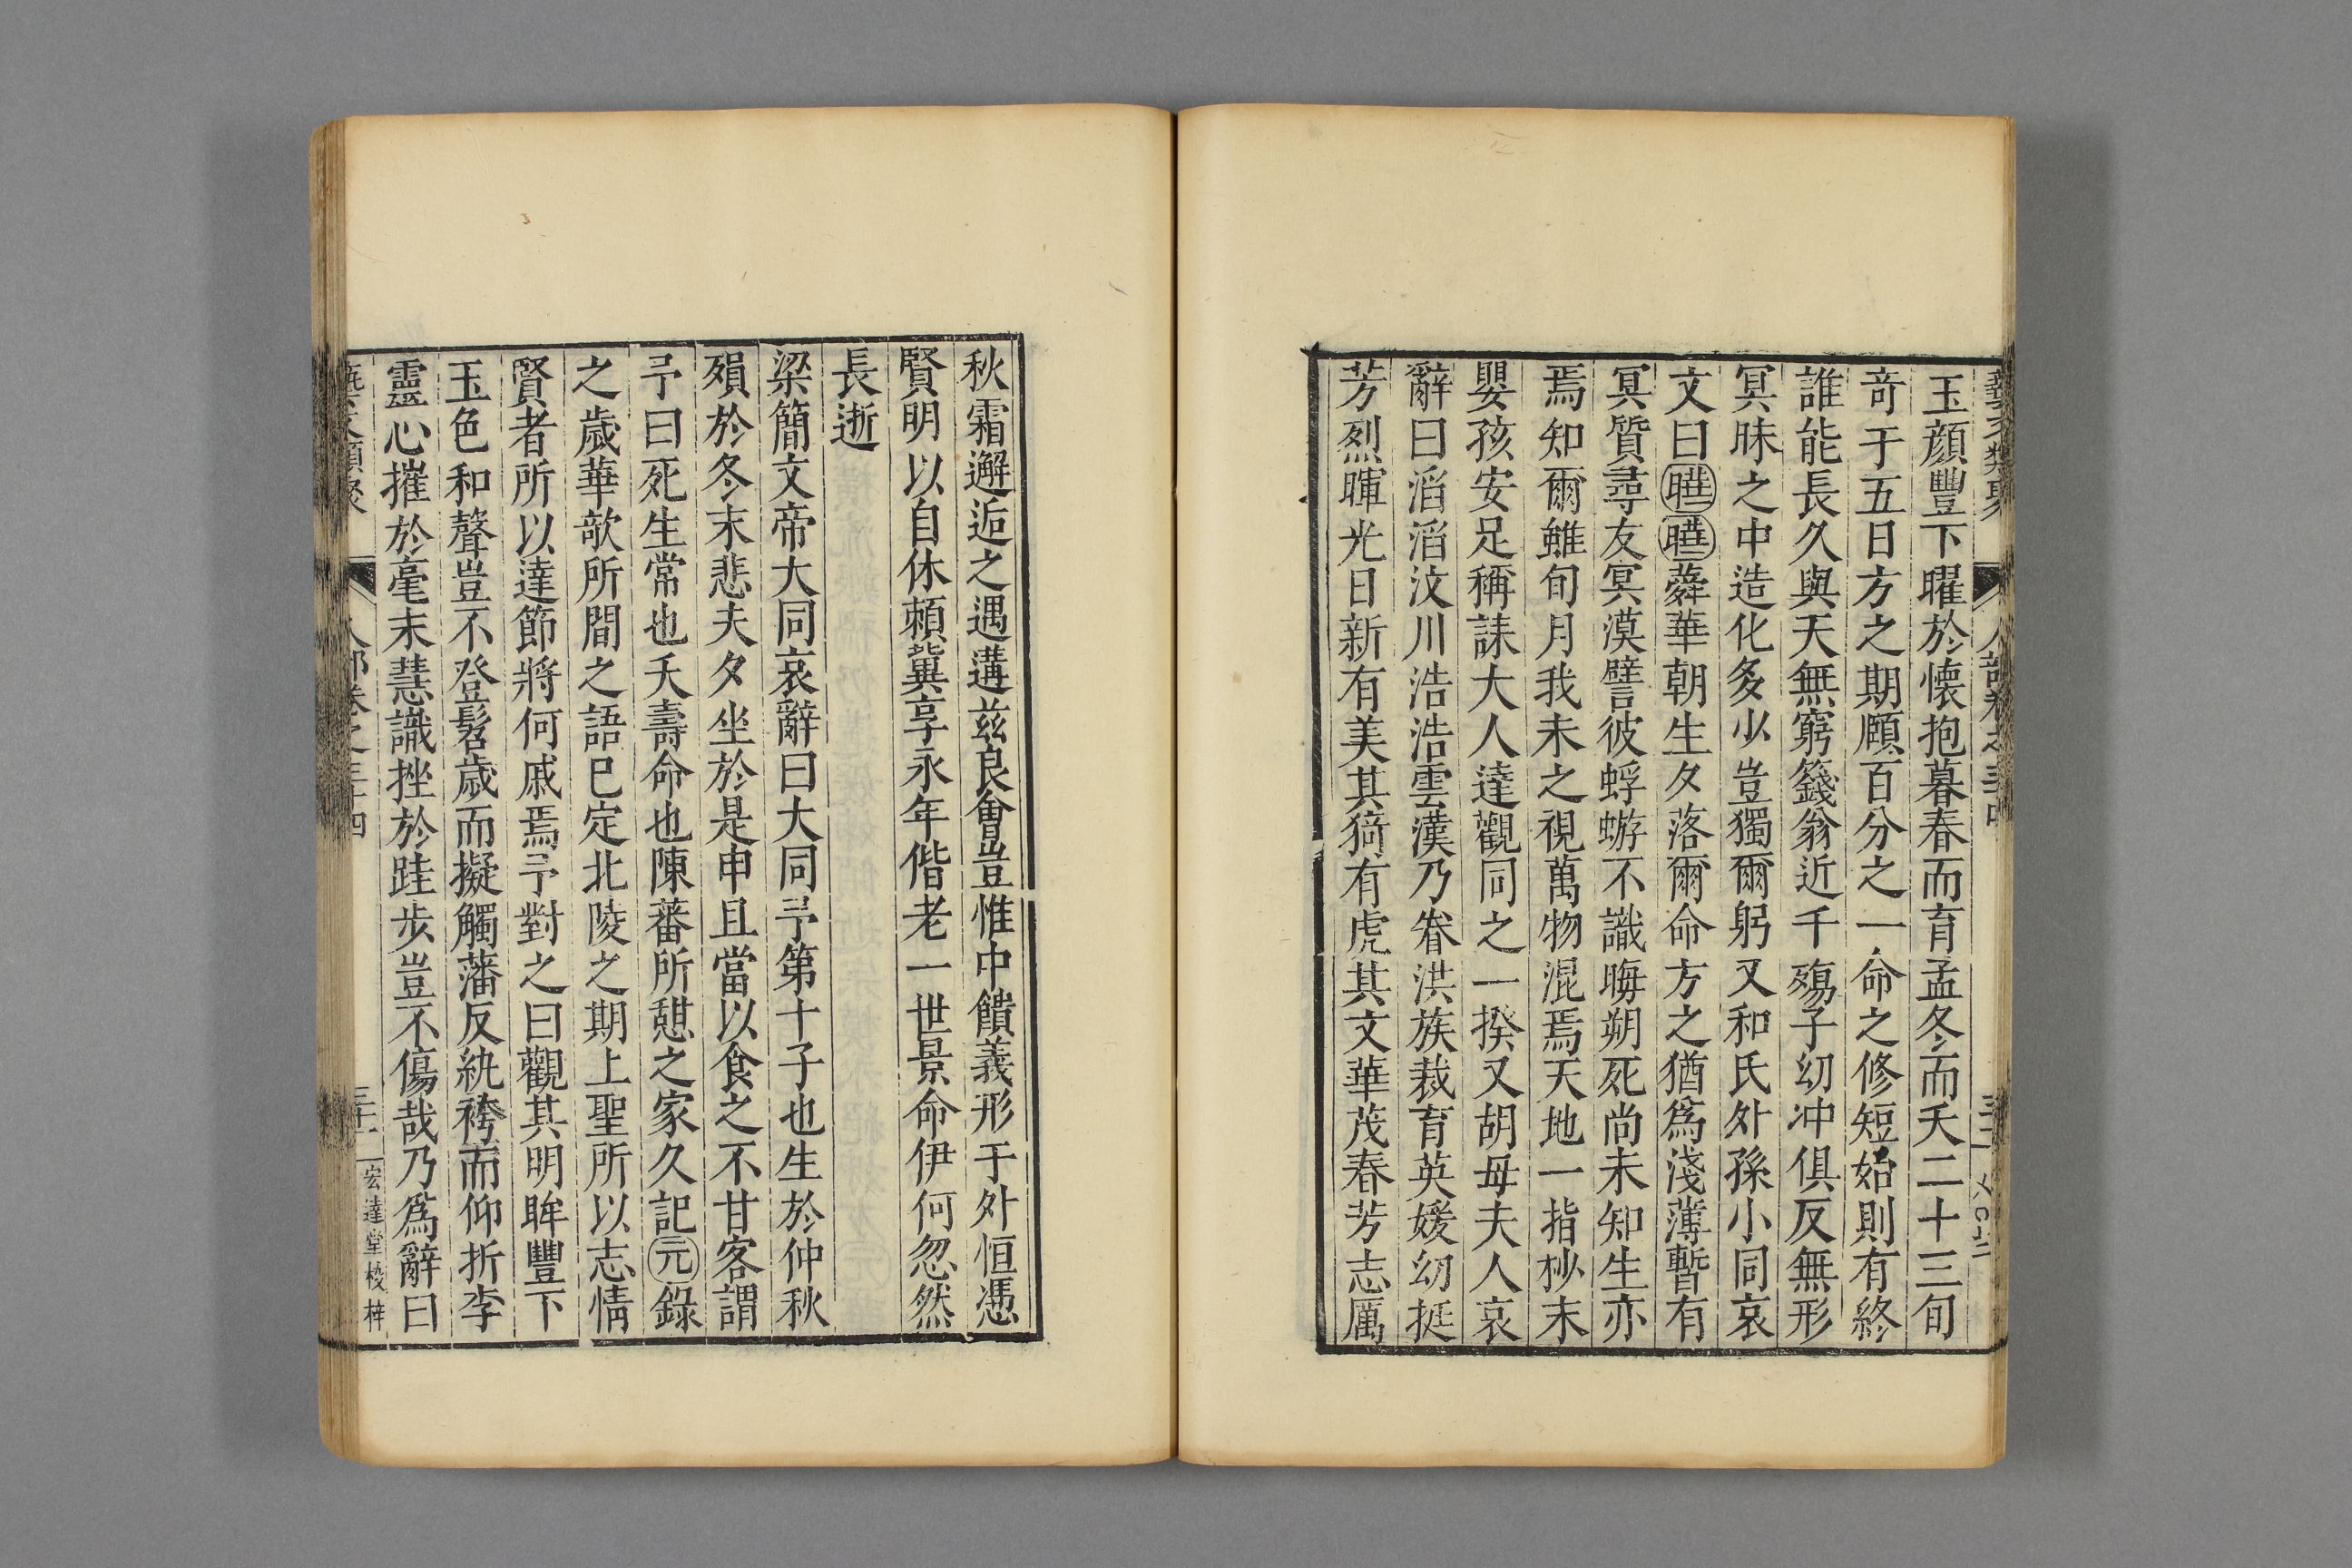 玉顔豐下曜於懷抱暮春而育孟冬而夭二十三旬
竒于五日方之期頥百分之一命之修短始則有終
誰能長久與天無窮籛翁近千殤子幼冲俱反無形
冥昧之中造化多少豈獨爾躬又和氏外孫小同哀
文曰曄曄蕣華朝生夕落爾命方之猶爲淺薄暫有
冥質尋友冥漠譬彼蜉蝣不識晦朔死尚未知生亦
焉知爾雖旬月我未之視萬物混焉天地一指杪末
嬰孩安足稱誄大人達觀同之一揆又胡母夫人哀
辭曰滔滔汶川浩浩雲漢乃眷洪族裁育英媛幼挺
芳烈暉光日新有美其猗有虎其文華茂春芳志厲
秋霜邂逅之遇遘兹良會豈惟中饋義形于外恒憑
賢明以自休頼冀享永年偕老一世景命伊何忽然
長逝
梁簡文帝大同哀辭曰大同予第十子也生於仲秋
殞於冬末悲夫夕坐於是申且當以食之不甘客謂
予曰死生常也夭壽命也陳蕃所憇之家久記元錄
之歲華歆所聞之語已定北陵之期上聖所以志情
賢者所以達節將何戚焉予對之曰觀其明眸豐下
玉色和聲豈不登髫歲而擬觸藩反紈袴而仰折李
靈心摧於毫末慧識挫於跬步豈不傷哉乃爲辭曰
宏達堂校梓